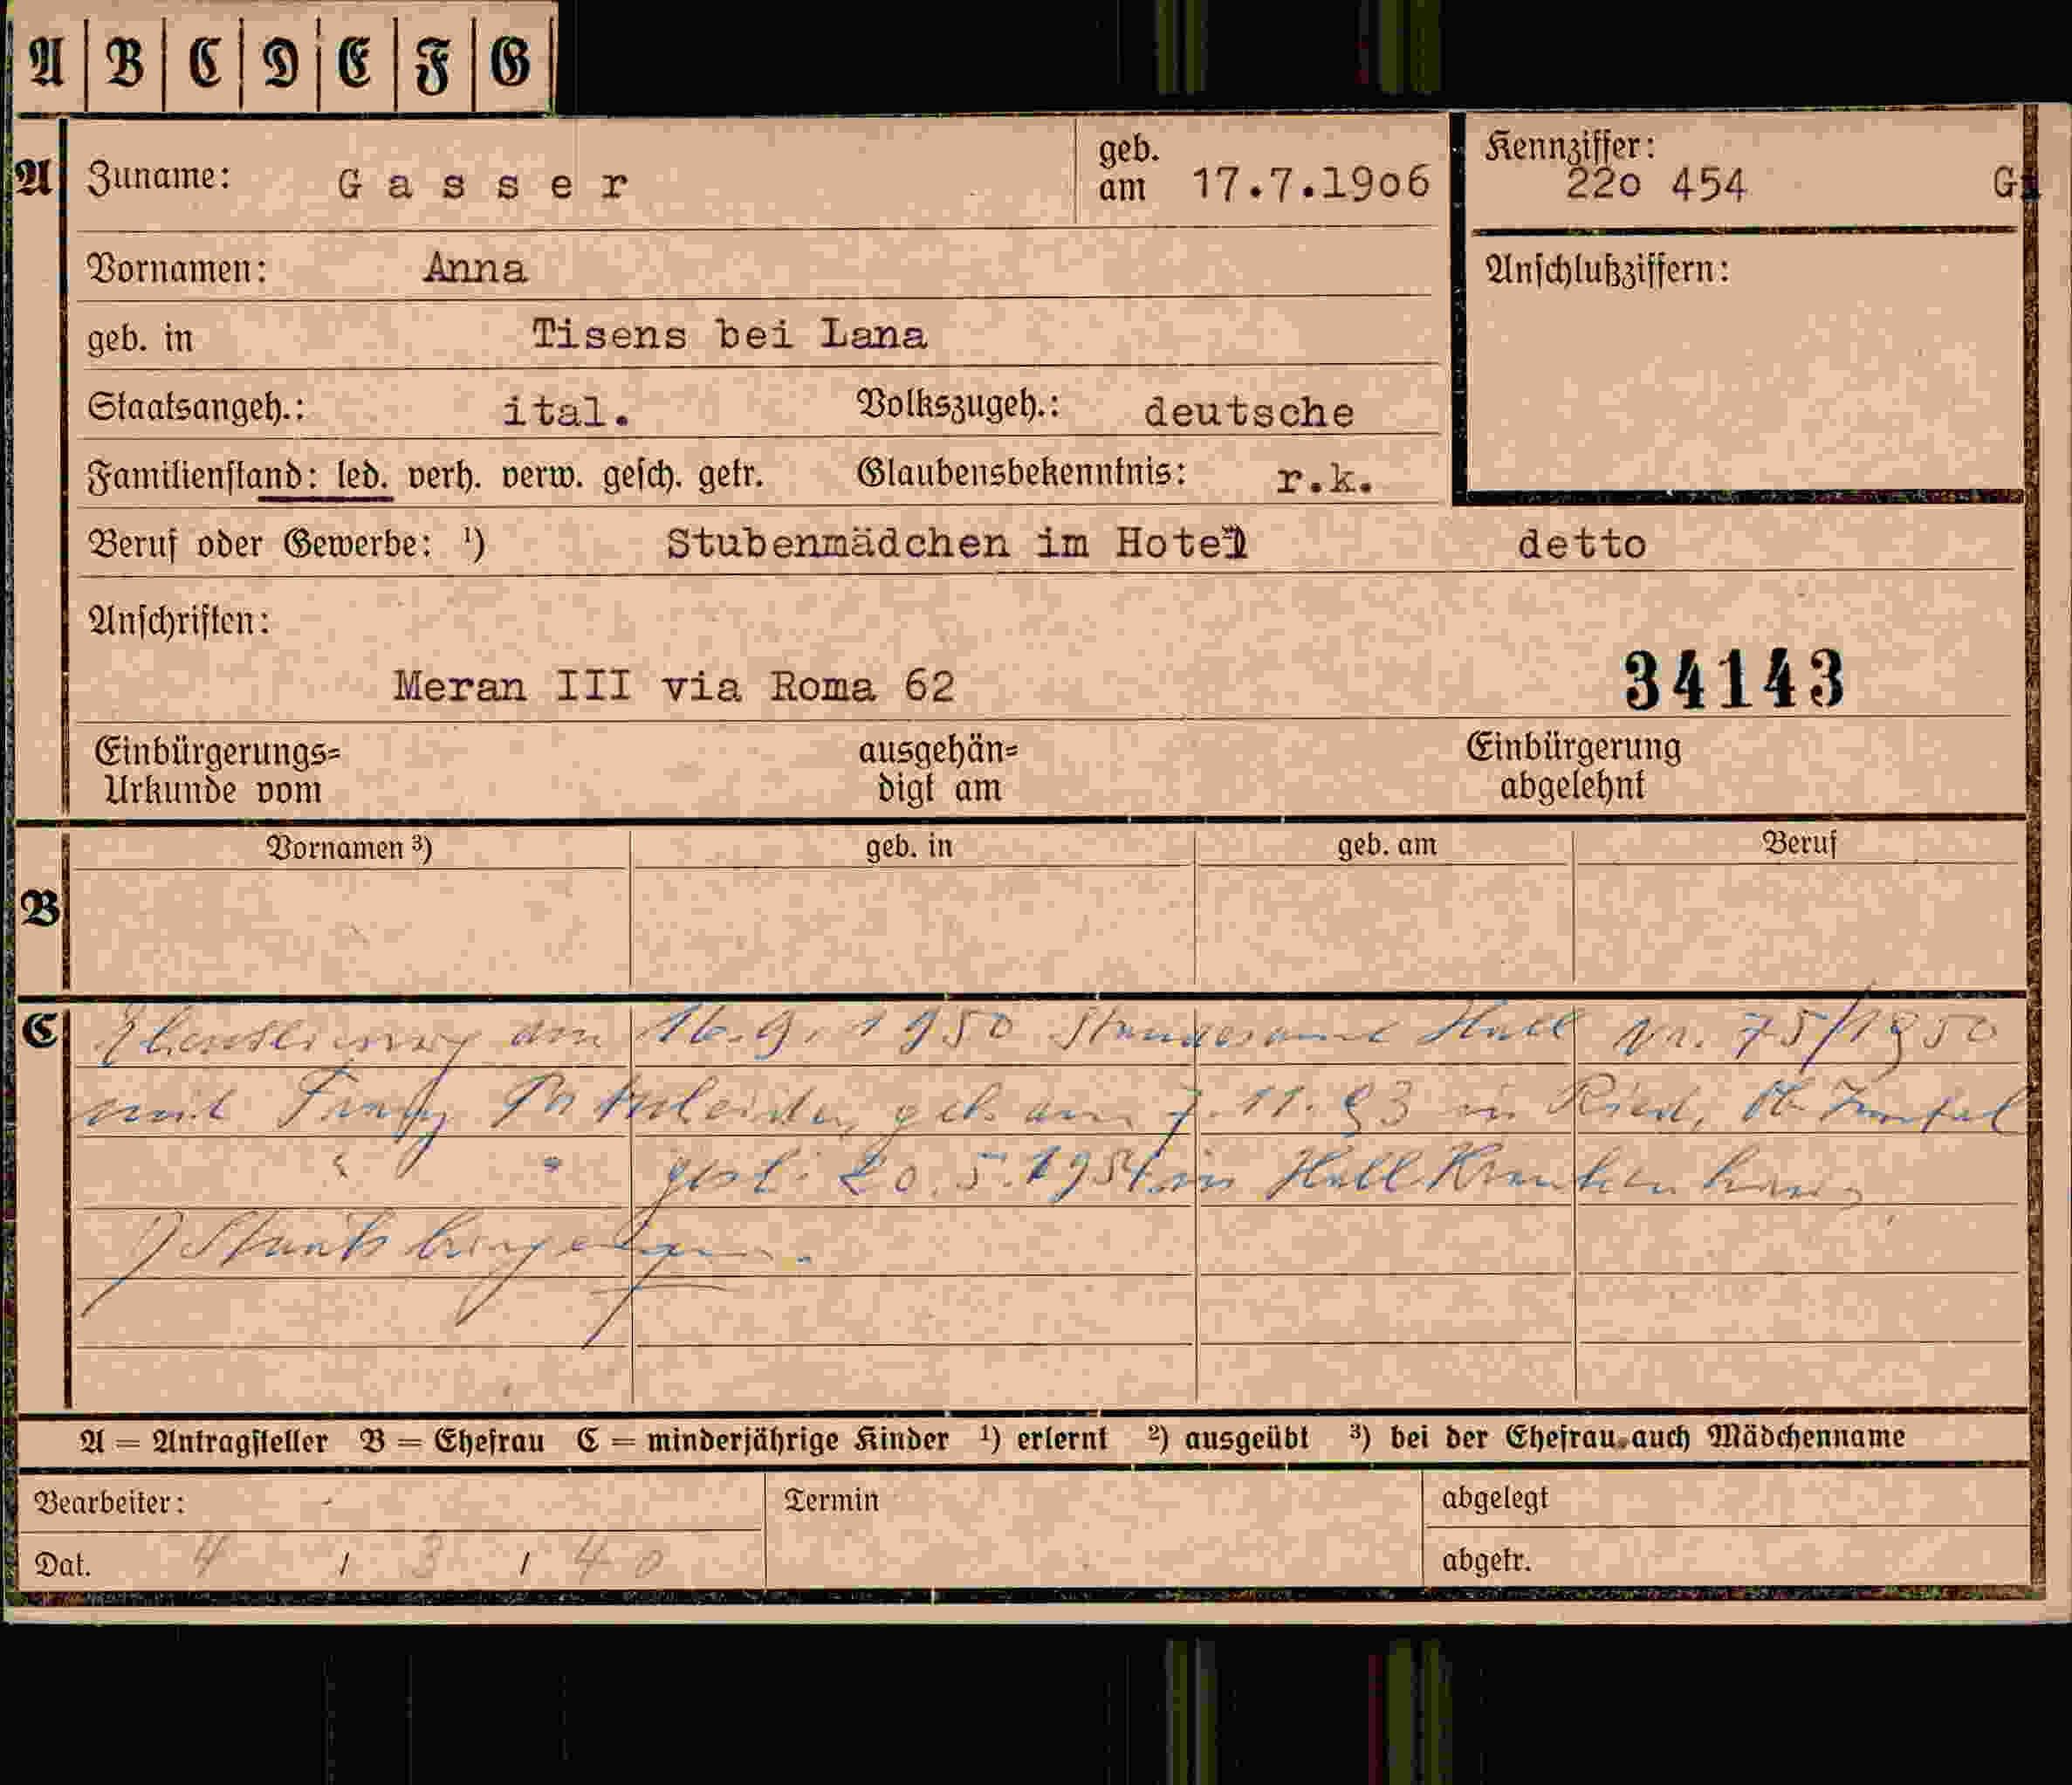 A B C D E F G
A Zuname: Gasser geb. am 17.7.1906 Kennziffer: 220 454
Vornamen: Anna Anschlußziffern:
geb. in Tisens bei Lana
Staatsangeh.: ital. Volkszugeh.: deutsche
Familienstand: led. verh. verw. gesch. getr. Glaubensbekenntnis: r.k.
Beruf oder Gewerbe: ¹) Stubenmädchen im Hotel detto
Anschriften:
Meran III via Roma 62 34143
Einbürgerungs= Urkunde vom ausgehän= digt am Einbürgerung abgelehnt
Vornamen ³) geb. in geb. am Beruf
B
C Eheschliessung am 16.9.1950 Standesamt Hall Nr. 75/1950
mit Franz geb. am 7.11.93 in Ried, Ob. Inntal
" " gest. 20.5.1954 in Hall Krankenhaus
A = Antragsteller B = Ehefrau C = minderjährige Kinder ¹) erlernt ²) ausgeübt ³) bei der Ehefrau auch Mädchenname
Bearbeiter: Termin abgelegt
Dat. 4 / 3 / 40 abgetr.